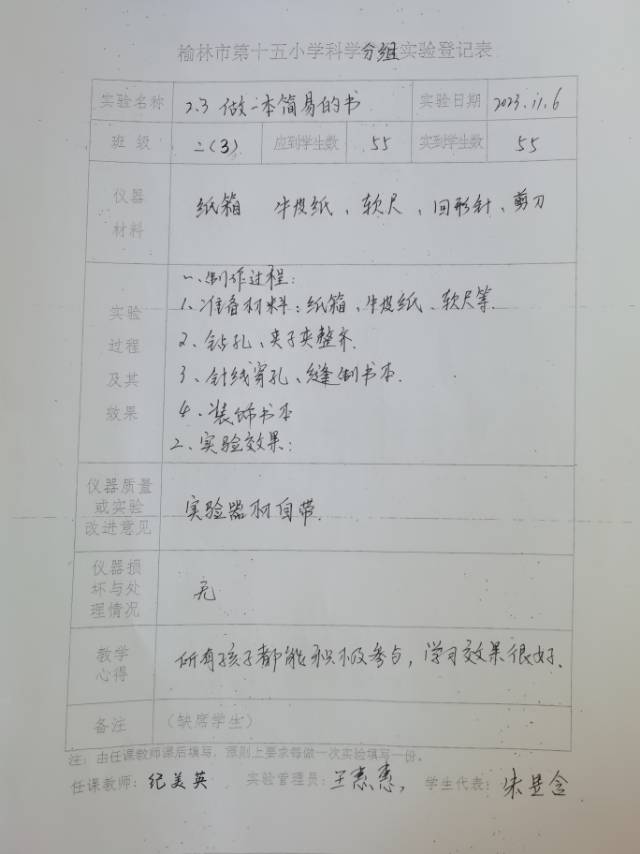 榆林市第十五小学科学分组实验登记表
实验名称 2.3 做一本简易的书 实验日期 2023.11.6
班 级 二(3) 应到学生数 55 实到学生数 55
仪器材料 纸箱 牛皮纸、软尺、回形针、剪刀
实验过程及其效果
一、制作过程:
1、准备材料:纸箱、牛皮纸、软尺等.
2、钻孔、夹子夹整齐.
3、针线穿孔、缝制书本.
4、装饰书本
2、实验效果:
仪器质量或实验改进意见 实验器材自带.
仪器损坏与处理情况 无
教学心得 所有孩子都能积极参与,学习效果很好.
备注 (缺席学生)
注:由任课教师课后填写,原则上要求每做一次实验填写一份。
任课教师:纪美英 实验管理员:王惠惠, 学生代表:朱